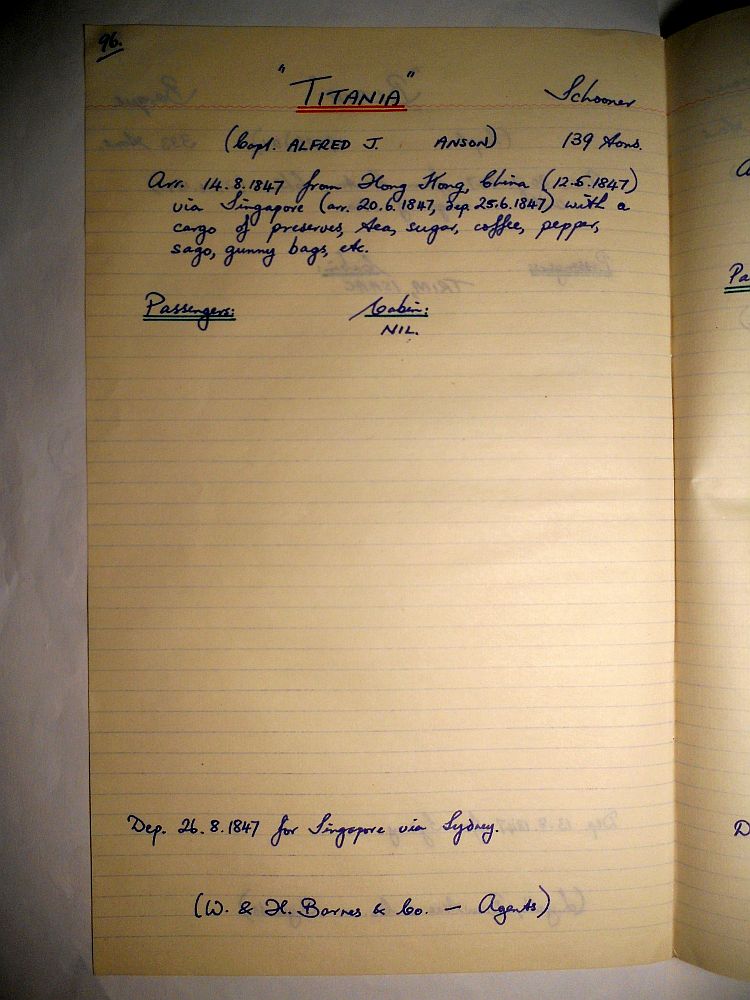 96.
"TITANIA" Schooner
(Capt. ALFRED J. ANSON) 139 tons.
Arr. 14.8.1847 from Hong Kong, China (12.5.1847)
via Singapore (arr. 20.6.1847, dep 25.6.1847) with a
cargo of preserves, tea, sugar, coffee, pepper,
sago, gunny bags, etc.
Passengers: Cabin:
NIL.
Dep. 26.8.1847 for Singapore via Sydney.
(W. & H. Barnes & Co. — Agents)
Pa
D